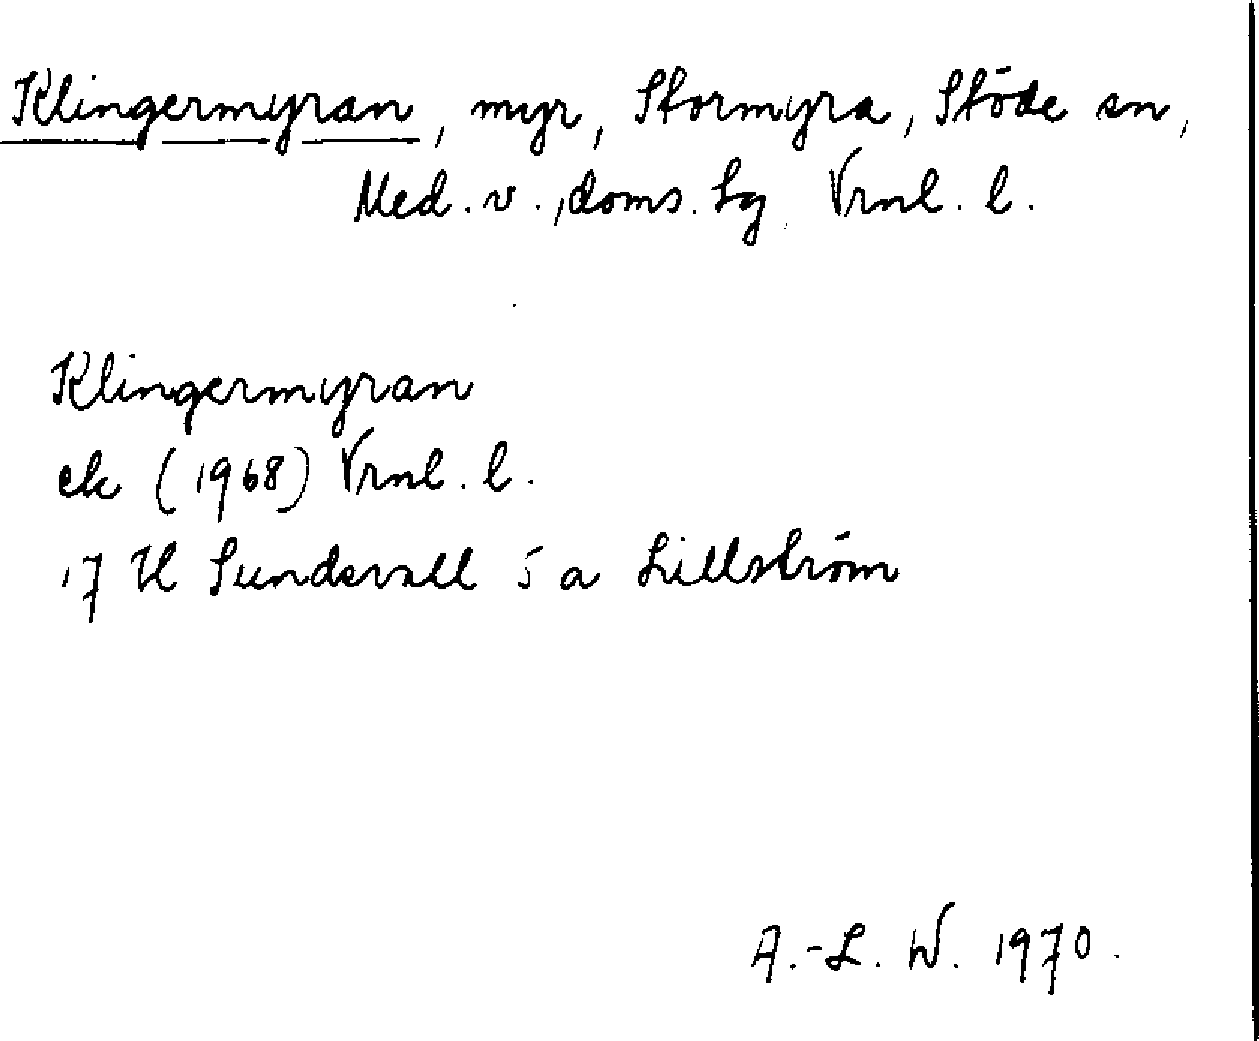 Klingermyran, myr, Stormyra, Stöde sn,
Med. v., doms. sg. Vrnl. l.
Klingermyran
ek (1968) Vrnl. l.
17 H Sundsvall 5 a Lillström
A.-L. W. 1970.